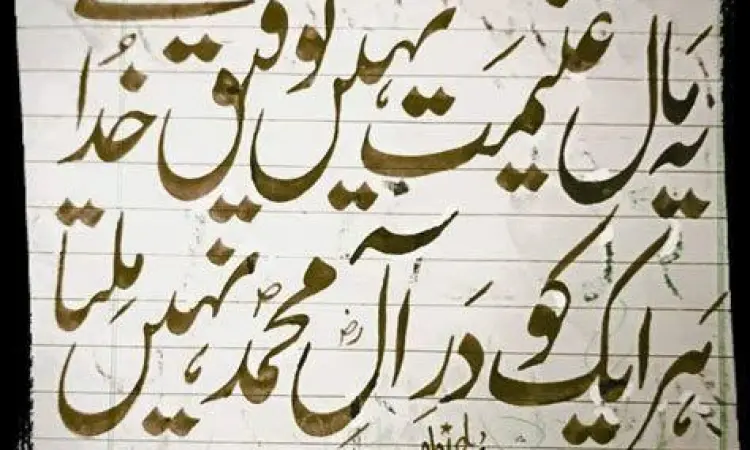 یہ مالِ غنیمت نہیں توفیق خدا ہے
ہر ایک کو درِ آلِ محمدؐ نہیں مِلتا